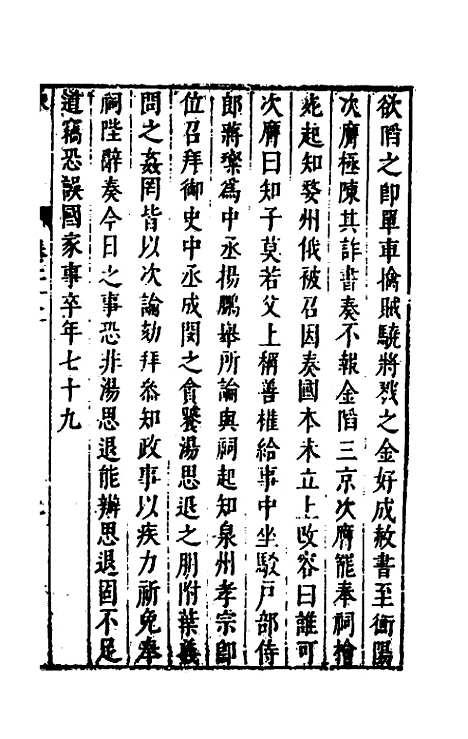 欲陷之即單車擒賊驍將戮之金好成赦書至衡陽
次膺極陳其詐書奏不報金陷三京次膺罷奉祠檜
薨起知婺州俄被召因奏國本未立上改容曰誰可
次膺曰知子莫若父上稱善權給事中坐駁戸部侍
郎蔣璨爲中丞揚鵬舉所論與祠起知泉州孝宗卽
位召拜御史中丞成閔之貪饕湯思退之朋附葉義
問之姦罔皆以次論劾拜叅知政事以疾力祈免奉
祠陛辭奏今日之事恐非湯思退能辦思退固不足
道竊恐誤國家事卒年七十九